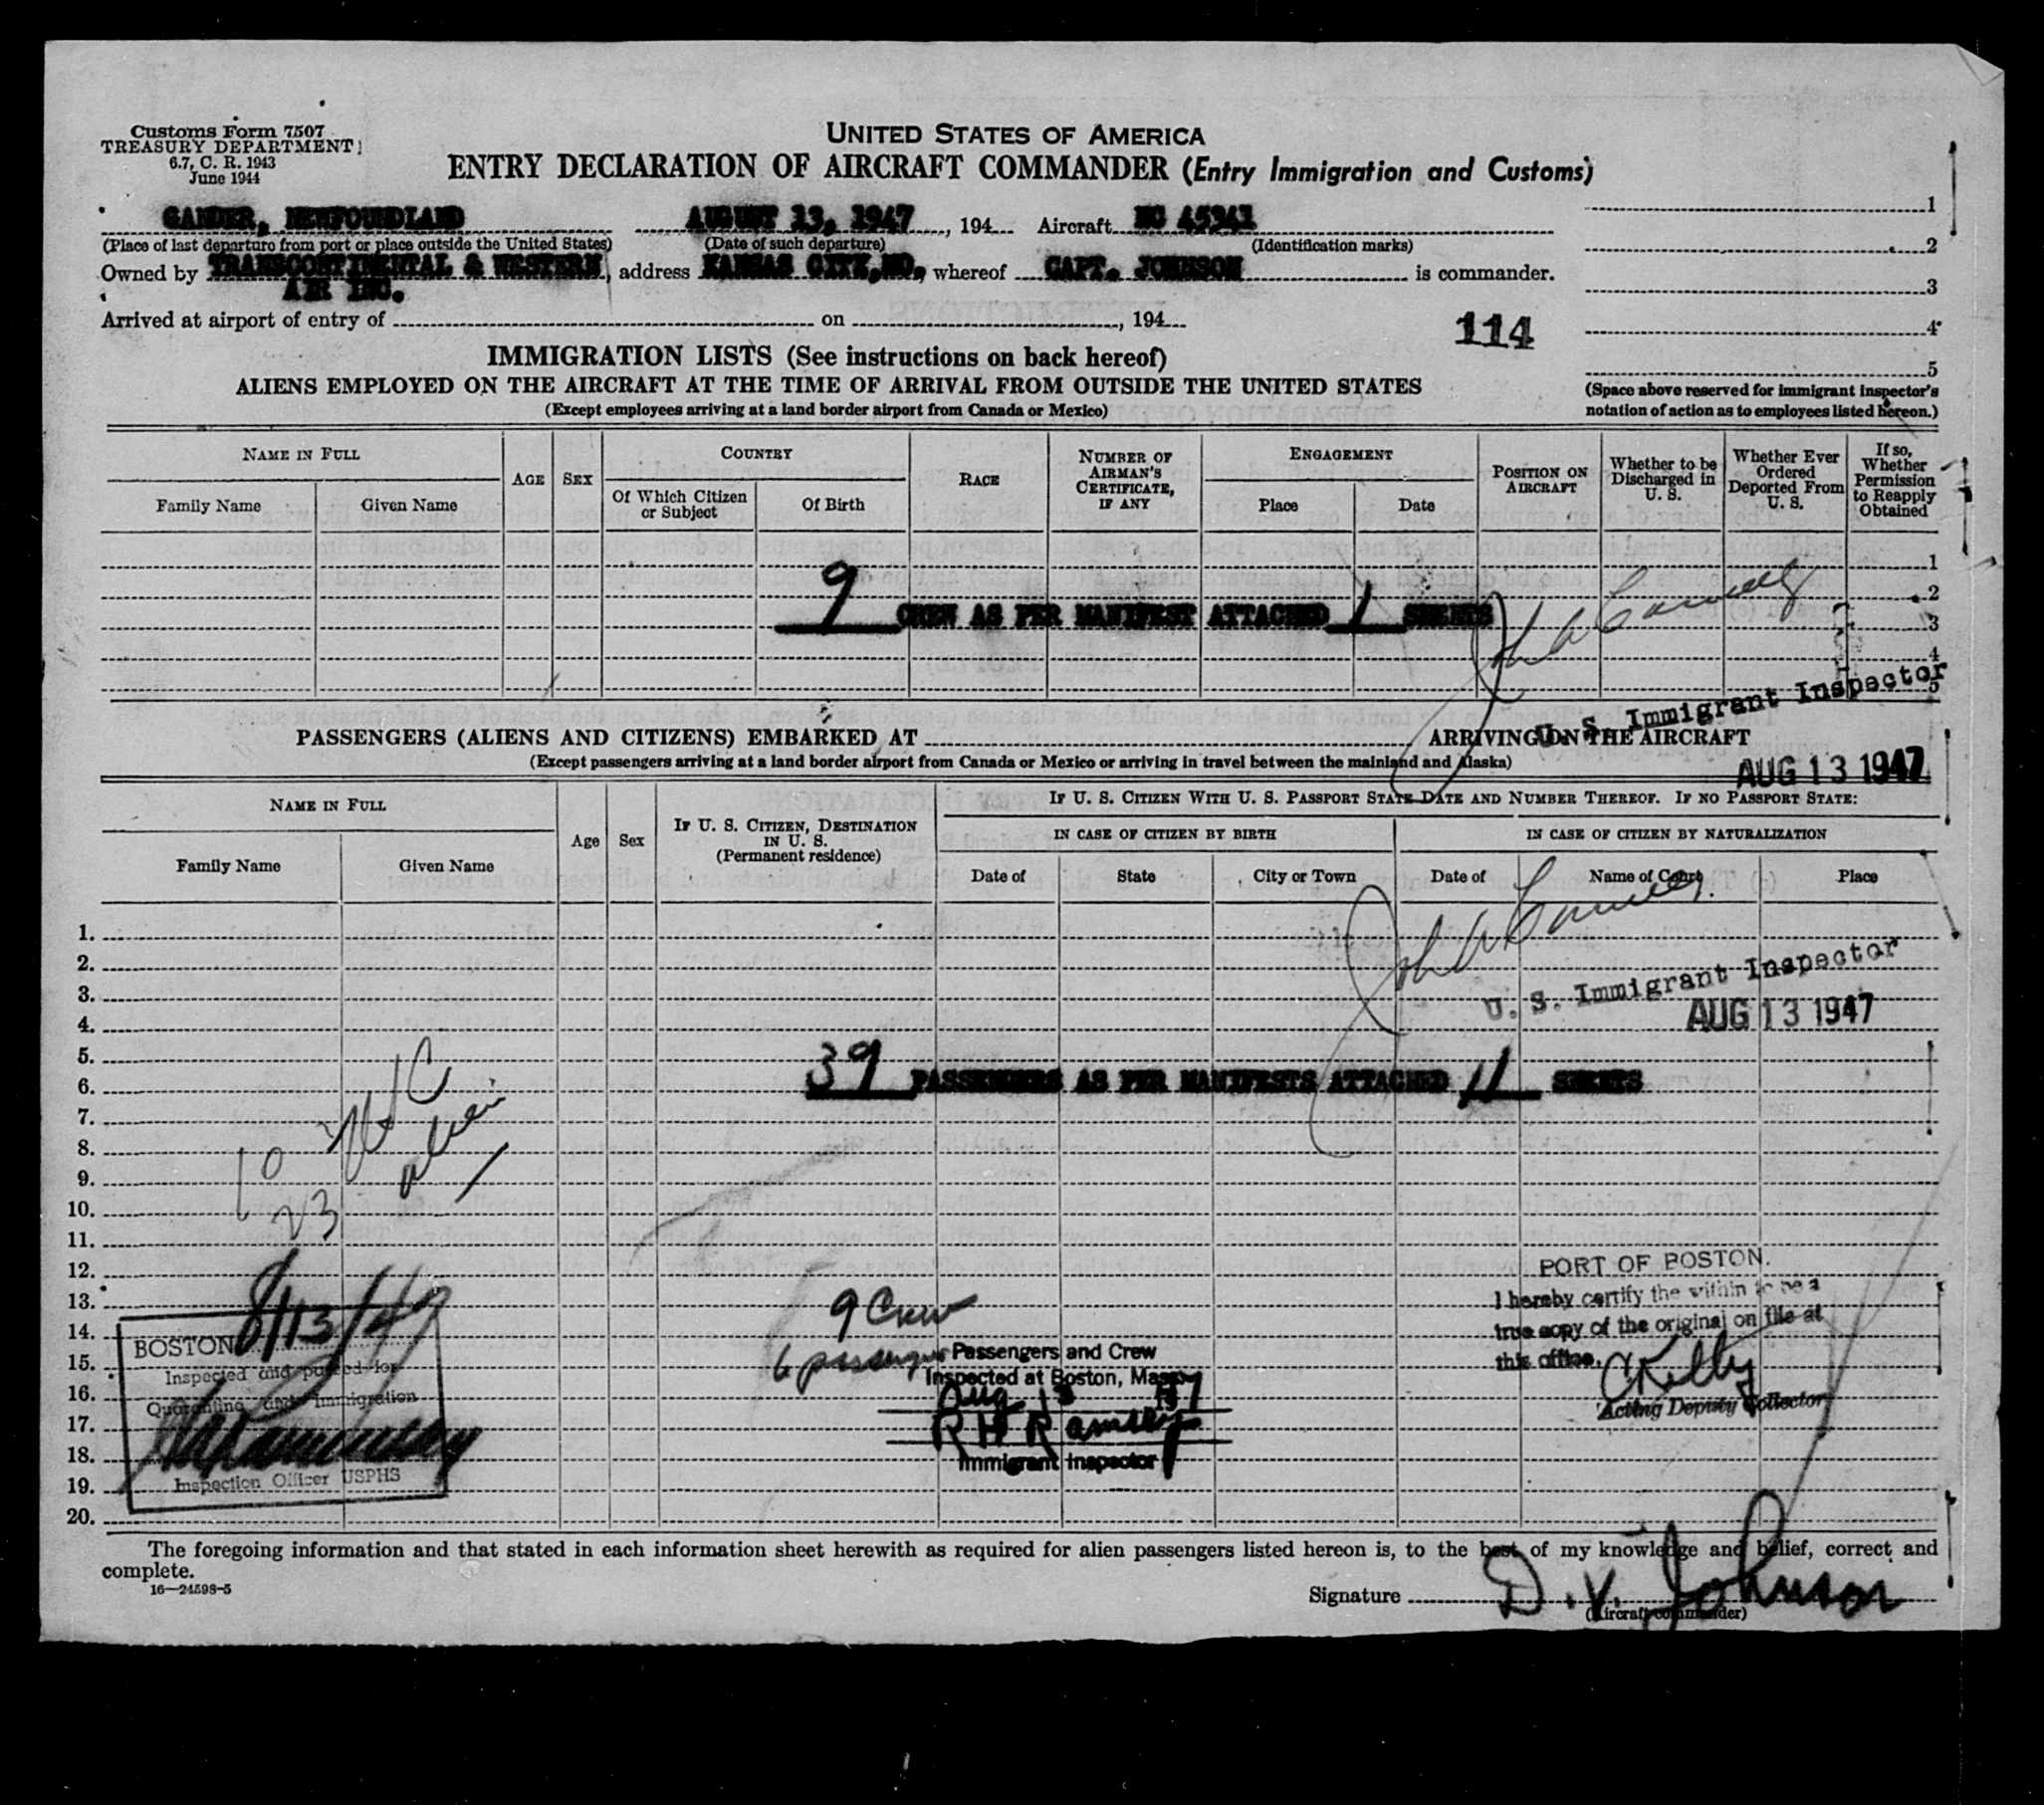 Customs Form 7507
TREASURY DEPARTMENT
6.7, C. R. 1943
June 1944
UNITED STATES OF AMERICA
ENTRY DECLARATION OF AIRCRAFT COMMANDER (Entry Immigration and Customs)
GANDER, NEWFOUNDLAND AUGUST 13, 1947, 194 Aircraft NC 45341
(Place of last departure from port or place outside the United States) (Date of such departure) (Identification marks)
Owned by TRANSCONTINENTAL & WESTERN, address KANSAS CITY, MO, whereof CAPT. JOHNSON is commander.
AIR INC.
Arrived at airport of entry of on , 194
114
1
2
3
4
5
(Space above reserved for immigrant inspector's
notation of action as to employees listed hereon.)
IMMIGRATION LISTS (See instructions on back hereof)
ALIENS EMPLOYED ON THE AIRCRAFT AT THE TIME OF ARRIVAL FROM OUTSIDE THE UNITED STATES
(Except employees arriving at a land border airport from Canada or Mexico)
NAME IN FULL
Family Name
Given Name
AGE
SEX
COUNTRY
Of Which Citizen
or Subject
Of Birth
RACE
NUMBER OF
AIRMAN'S
CERTIFICATE,
IF ANY
ENGAGEMENT
Place
Date
POSITION ON
AIRCRAFT
Whether to be
Discharged in
U. S.
Whether Ever
Ordered
Deported From
U. S.
If so,
Whether
Permission
to Reapply
Obtained
1
2
9 CREW AS PER MANIFEST ATTACHED 1 SHEETS
3
4
5
U. S. Immigrant Inspector
PASSENGERS (ALIENS AND CITIZENS) EMBARKED AT ARRIVING ON THE AIRCRAFT
(Except passengers arriving at a land border airport from Canada or Mexico or arriving in travel between the mainland and Alaska)
AUG 13 1947
NAME IN FULL
Family Name
Given Name
Age
Sex
IF U. S. CITIZEN, DESTINATION
IN U. S.
(Permanent residence)
IF U. S. CITIZEN WITH U. S. PASSPORT STATE DATE AND NUMBER THEREOF. IF NO PASSPORT STATE:
IN CASE OF CITIZEN BY BIRTH
IN CASE OF CITIZEN BY NATURALIZATION
Date of
State
City or Town
Date of
Name of Court
Place
1.
2.
U. S. Immigrant Inspector
3.
AUG 13 1947
4.
5.
39 PASSENGERS AS PER MANIFESTS ATTACHED 11 SHEETS
6.
7.
8.
10
9.
23
10.
11.
12.
13.
14.
15.
16.
17.
18.
19.
20.
BOSTON 8/13/47
Inspected and passed for
Quarantine and Immigration
Inspection Officer USPHS
9 Crew
6 passengers
Passengers and Crew
Inspected at Boston, Mass.
Aug 13 1947
R H Ramsey
Immigrant Inspector
PORT OF BOSTON.
I hereby certify the within to be a
true copy of the original on file at
this office.
C Kelly
Acting Deputy Collector
The foregoing information and that stated in each information sheet herewith as required for alien passengers listed hereon is, to the best of my knowledge and belief, correct and
complete.
16—24598-5
Signature D. V. Johnson
(Aircraft commander)